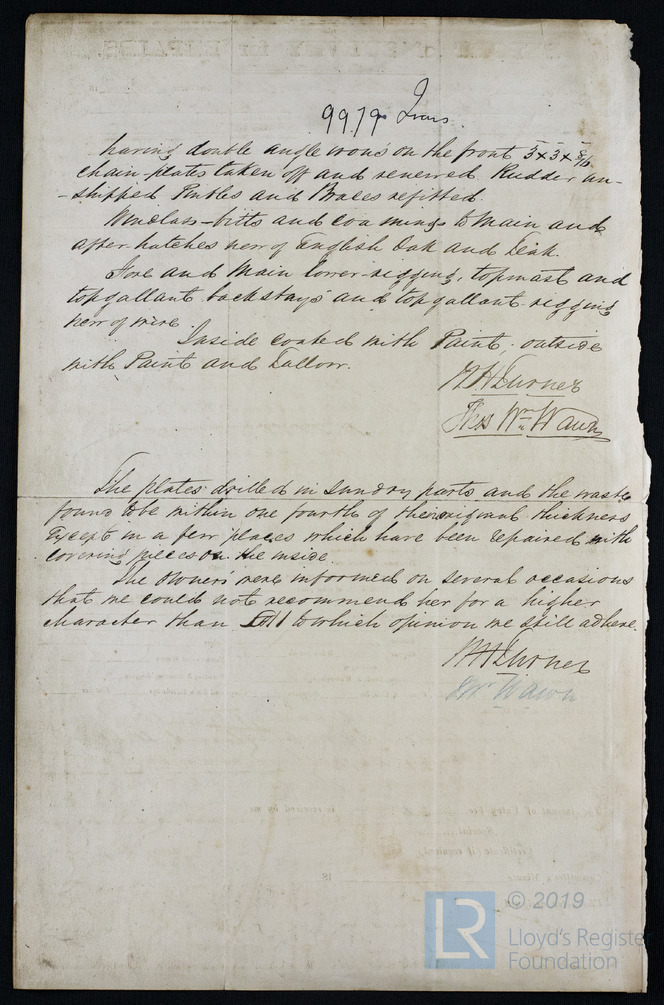 9979 Irons
having double angle irons on the front 3x3x8/16
chain plates taken off and renewed. Rudder un-
-shipped Pintles and Braces refitted.
Windlass-bitts and coamings to Main and
after hatches new of English Oak and Teak.
Fore and Main lower-rigging, topmast and
topgallant backstays and topgallant-rigging
new of wire.
Inside coated with Paint; outside
with Paint and Tallow.
W H Turner
Thos Wm Wawn
The plates drilled in sundry parts and the waste
found to be within one fourth of the original thickness
Except in a few places which have been repaired with
covering pieces on the inside.
The owners were informed on several occasions
that we could not recommend her for a higher
character than to which opinion we still adhere.
W H Turner
Wawn
© 2019
LR
Lloyd's Register
Foundation